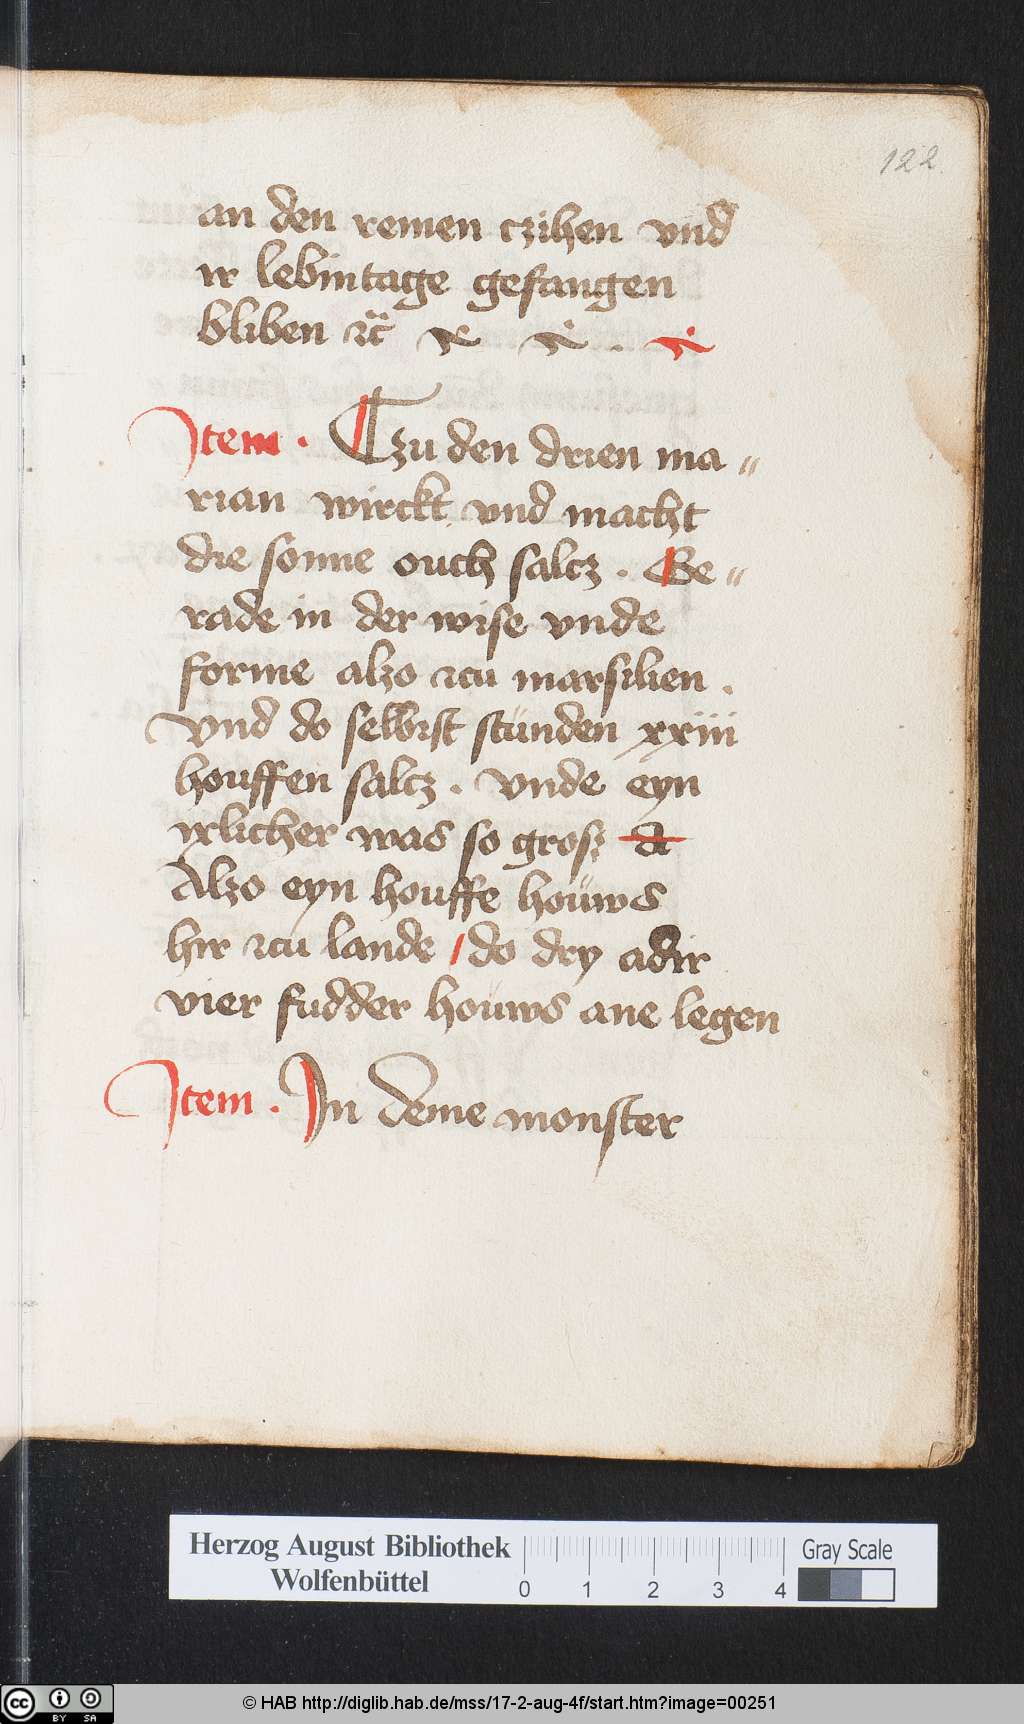 122
an den remen czihen vnd
ir lebintage gefangen
bliben ꝛc̈
Item · Czu den drien ma〃
rian wirckt vnd macht
die sonne ouch salcz . Ge〃
rade in der wise vnde
forme alzo zcu marsilien .
Vnd do selbist stünden xxiii
houffen salcz . vnde eyn
ixlicher was so grosz A
Alzo eyn houffe hoüws
hir zcu lande do dry adir
vier fudder hoüws ane legen
Item . In deme monster
Herzog August Bibliothek
Wolfenbüttel
0 1 2 3 4
Gray Scale
cc BY SA
© HAB http://diglib.hab.de/mss/17-2-aug-4f/start.htm?image=00251